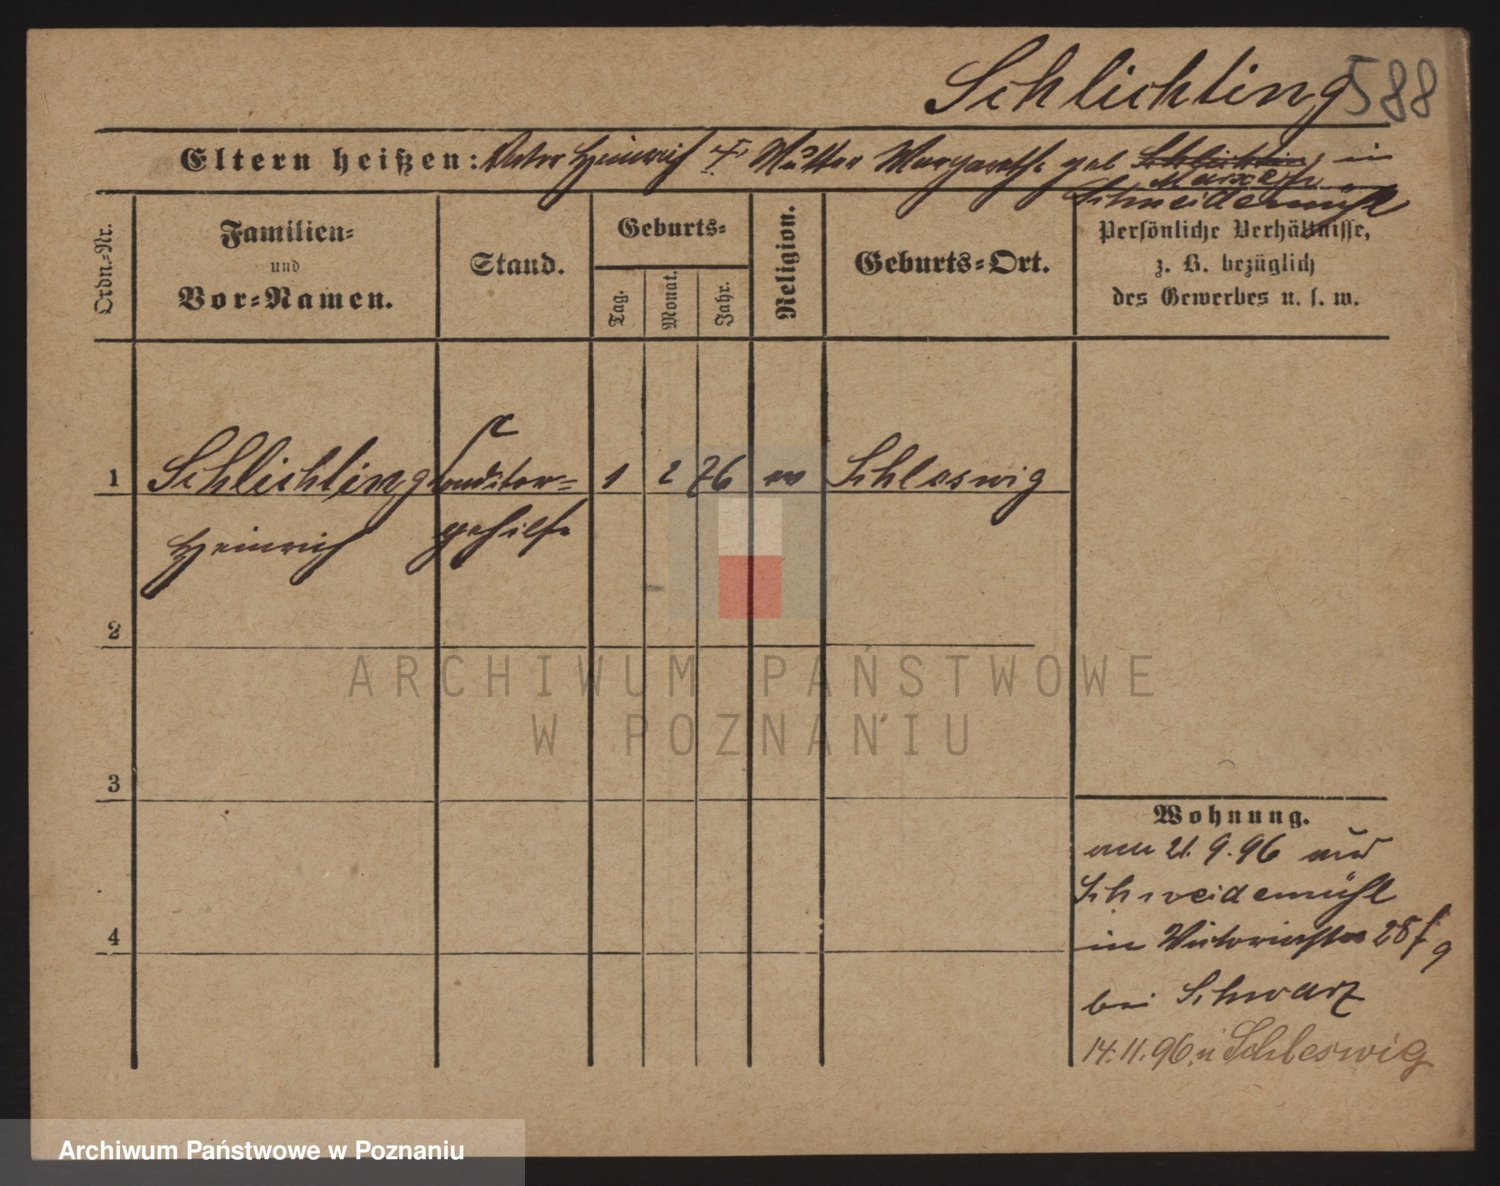 Schlichting 588
Eltern heißen: Vater Heinrich † Mutter Margarethe geb Schlichting in
Schneidemühl
Ordn.-Nr.
Familien-
und
Vor-Namen.
Stand.
Geburts-
Tag.
Monat.
Jahr.
Religion.
Geburts-Ort.
Persönliche Verhältnisse,
z. B. bezüglich
des Gewerbes u. s. w.
1 Schlichting Conditor- 1 2 76 ev Schleswig
Heinrich gehilfe
2
3
4
Wohnung.
am 21.9.96 aus
Schneidemühl
in Victoriastr 28
bei Schwarz
14.11.96 n Schleswig
ARCHIWUM PAŃSTWOWE
W POZNANIU
Archiwum Państwowe w Poznaniu